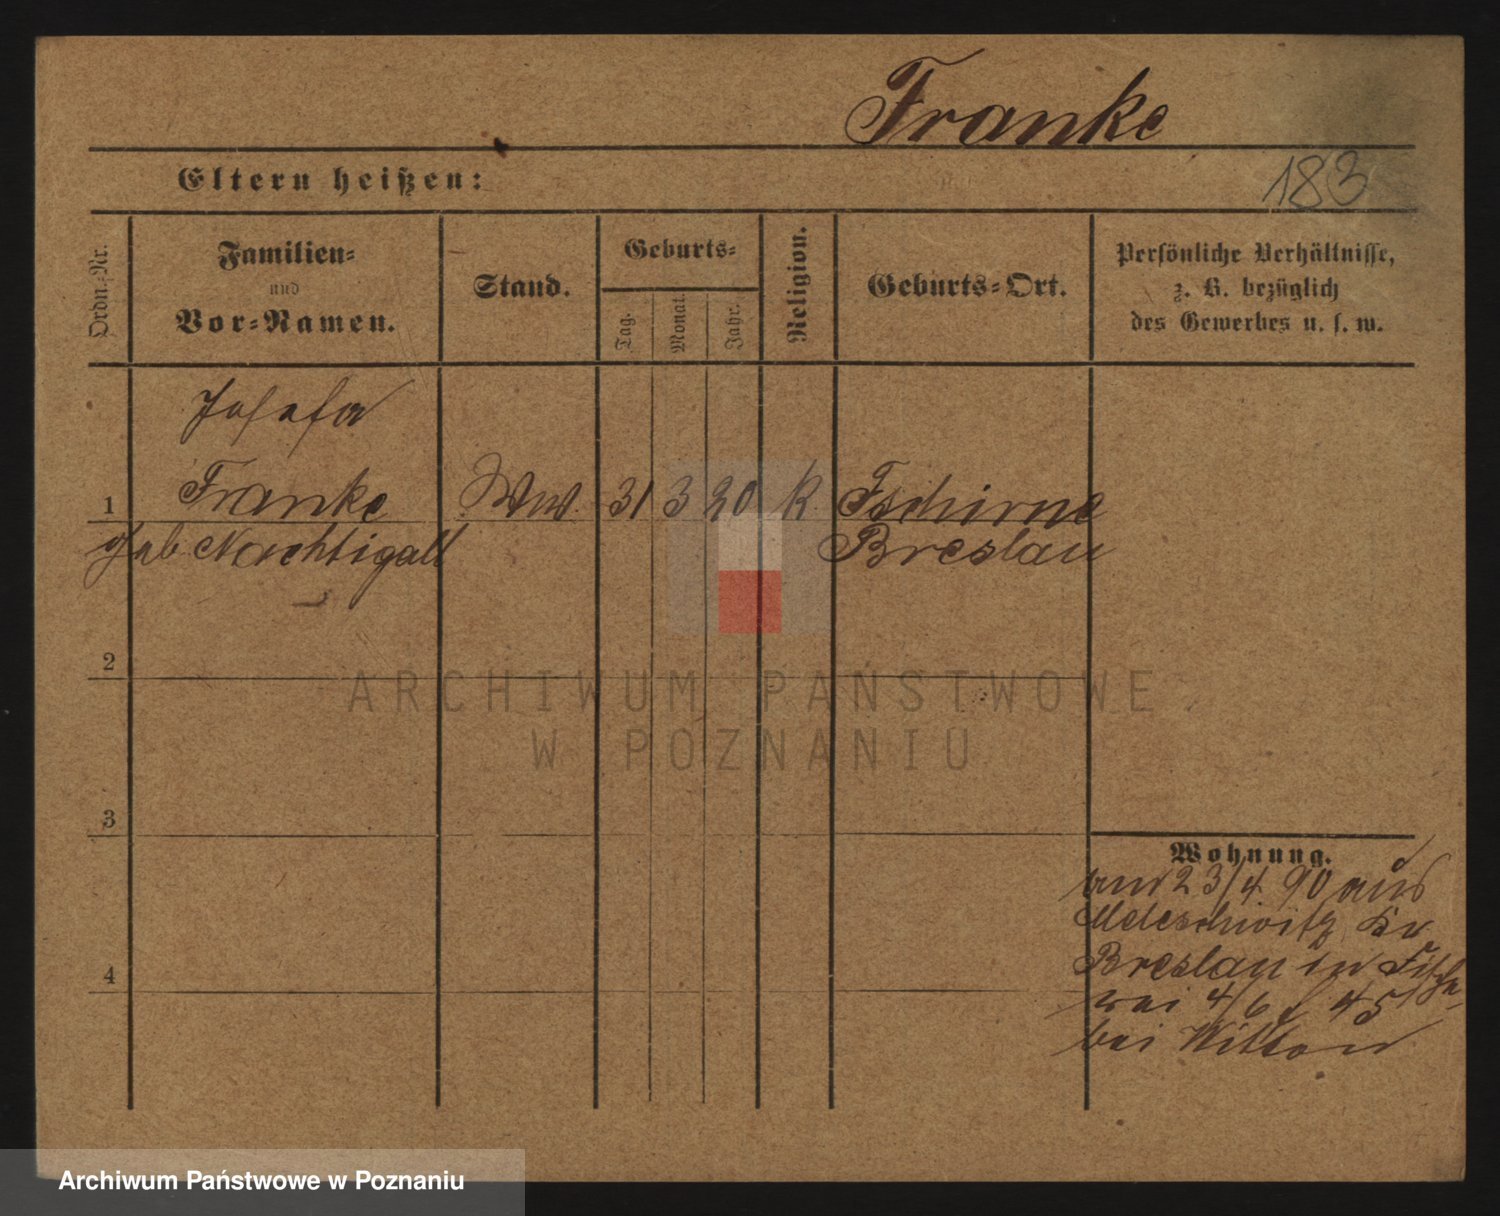 Franke
183
Eltern heißen:
Ordn.-Nr.
Familien-
und
Vor-Namen.
Stand.
Geburts-
Tag.
Monat.
Jahr.
Religion.
Geburts-Ort.
Persönliche Verhältnisse,
z. B. bezüglich
des Gewerbes u. s. w.
Josefa
1 Franke Ww. 31 3 20 k. Tschirne
geb Nachtigall Breslau
2
3
4
ARCHIWUM PAŃSTWOWE
W POZNANIU
Wohnung.
23/4 90 aus
Meleschwitz Kr
Breslau in Fische
rei 4/6 45
bei Wittow
Archiwum Państwowe w Poznaniu